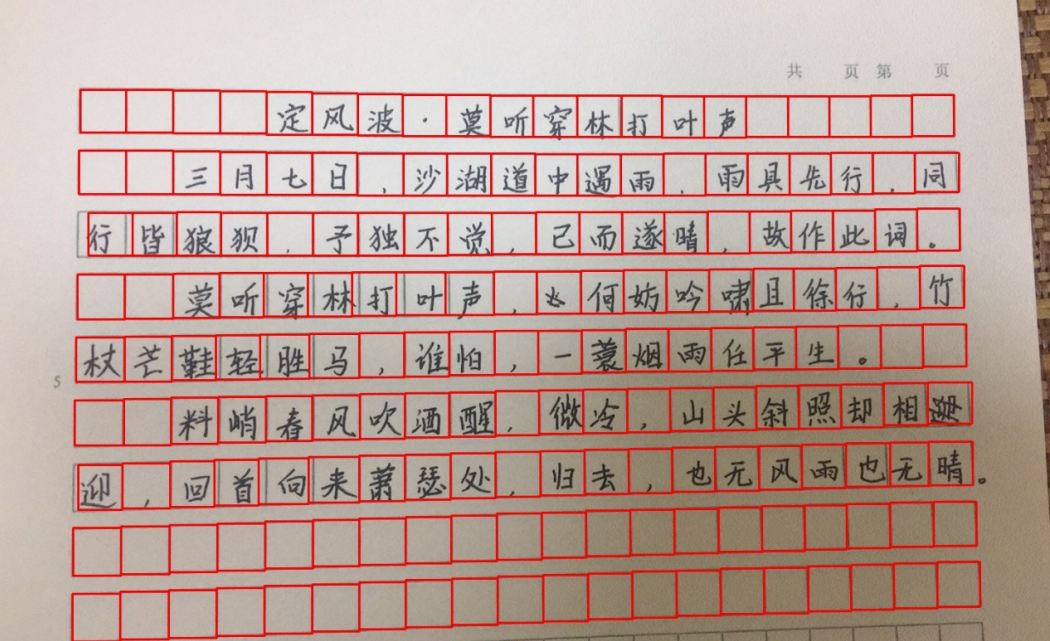 共 页 第 页
定风波·莫听穿林打叶声
三月七日，沙湖道中遇雨，雨具先行，同
行皆狼狈，予独不觉，已而遂晴，故作此词。
莫听穿林打叶声，何妨吟啸且徐行，竹
杖芒鞋轻胜马，谁怕，一蓑烟雨任平生。
5
料峭春风吹酒醒，微冷，山头斜照却相
迎，回首向来萧瑟处，归去，也无风雨也无晴。